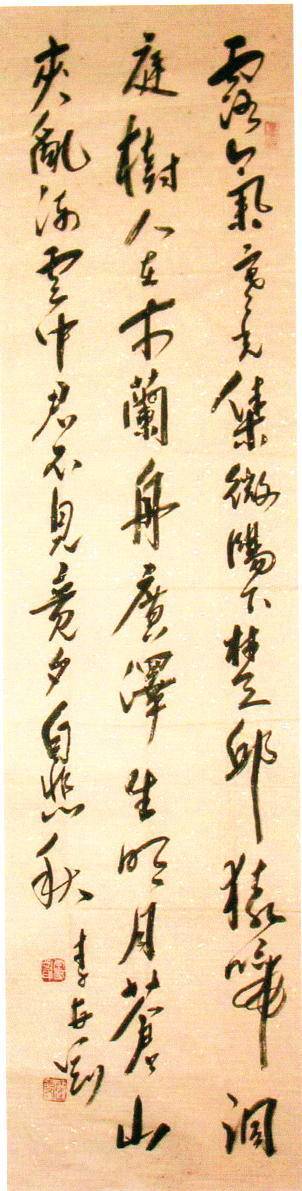 露氣寒光集微陽下楚邱猿啼洞
庭樹人在木蘭舟廣澤生明月蒼山
夾亂流雲中君不見竟夕自悲秋